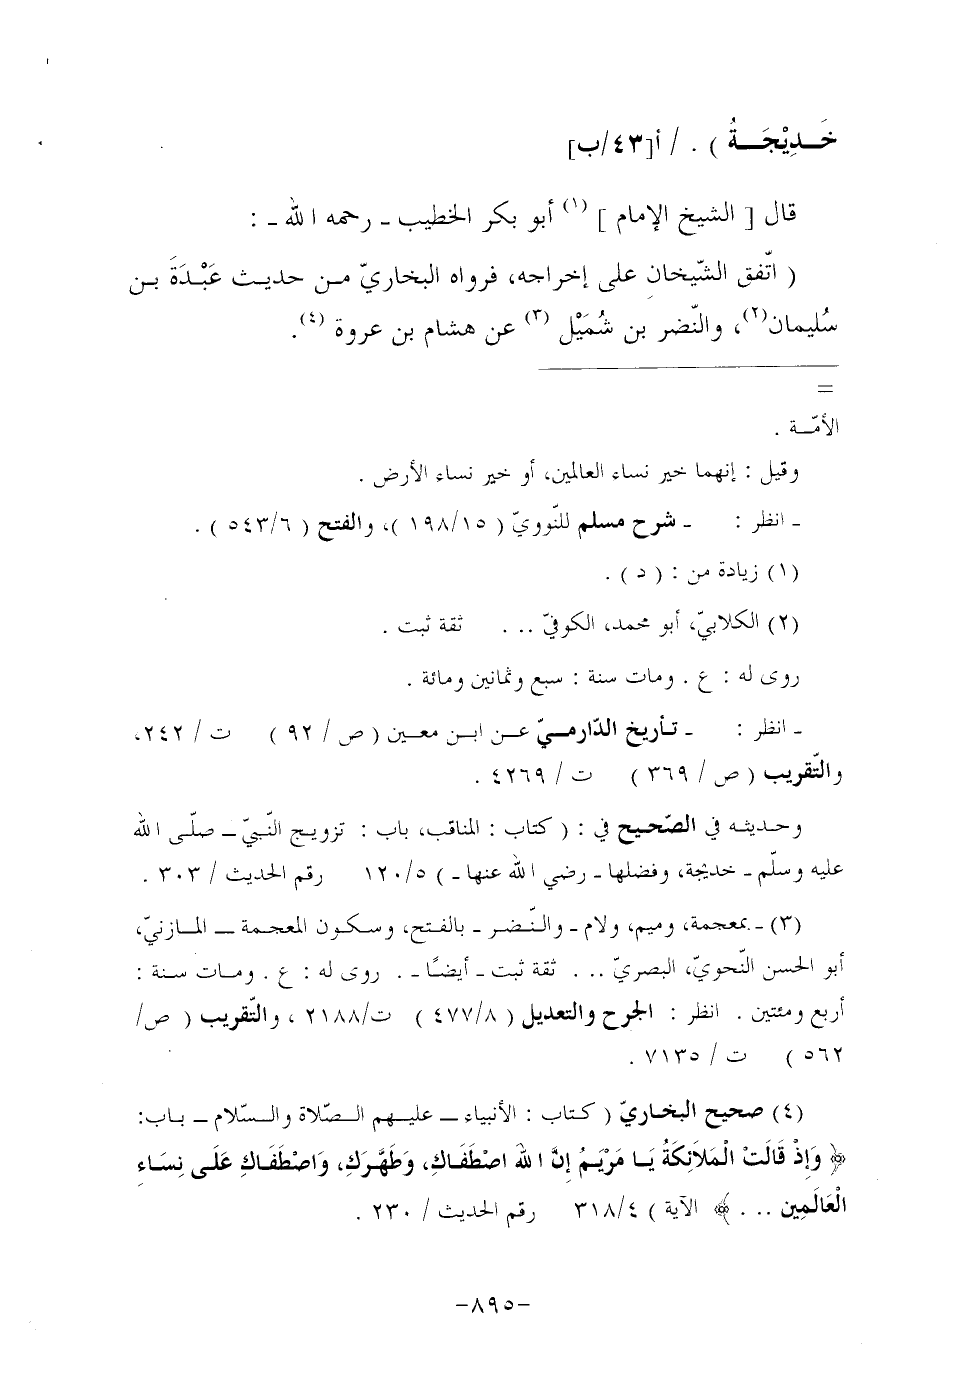 خَـدِيْجَـةُ ) . / أ[٤٣/ب]
قال [ الشيخ الإمام ] (١) أبو بكر الخطيب ـ رحمه الله ـ :
( اتّفق الشّيخان على إخراجه، فرواه البخاريّ مـن حديـث عَبْـدَةَ بـن
سُليمان(٢)، والنّضر بن شُمَيْل (٣) عن هشام بن عروة (٤).
=
الأمّـة .
وقيل : إنهما خير نساء العالمين، أو خير نساء الأرض .
ـ انظر : ـ شرح مسلم للنّوويّ ( ١٩٨/١٥ )، والفتح ( ٥٤٣/٦ ) .
(١) زيادة من : ( د ) .
(٢) الكلابيّ، أبو محمد، الكوفيّ ... ثقة ثبت .
روى له : ع . ومات سنة : سبع وثمانين ومائة .
ـ انظر : ـ تـأريخ الدّارمـيّ عـن ابـن معـين ( ص / ٩٢ ) ت / ٢٤٢،
والتّقريب ( ص / ٣٦٩ ) ت / ٤٢٦٩ .
وحديثـه في الصّحيح في : ( كتاب : المناقب، باب : تزويج النّبيّ ـ صلّى الله
عليه وسلّم ـ خديجة، وفضلها ـ رضي الله عنها ـ ) ١٢٠/٥ رقم الحديث / ٣٠٣ .
(٣) ـ بمعجمة، وميم، ولام ـ والنّـضر ـ بالفتح، وسكون المعجمة ـ المـازنيّ،
أبو الحسن النّحويّ، البصريّ ... ثقة ثبت ـ أيضًا ـ . روى له : ع . ومـات سنة :
أربع ومئتين . انظر : الجرح والتعديل ( ٤٧٧/٨ ) ت/٢١٨٨ ، والتّقريب ( ص/
٥٦٢ ) ت / ٧١٣٥ .
(٤) صحيح البخاريّ ( كتاب : الأنبياء ـ عليهم الصّلاة والسّلام ـ بـاب:
﴿ وَإِذْ قَالَتْ الْمَلَائِكَةُ يَـا مَرْيَـمُ إِنَّ الله اصْطَفَاكِ، وَطَهَّرَكِ، وَاصْطَفَاكِ عَلَى نِسَاءِ
الْعَالَمِين ... ﴾ الآية ) ٣١٨/٤ رقم الحديث / ٢٣٠ .
-٨٩٥-